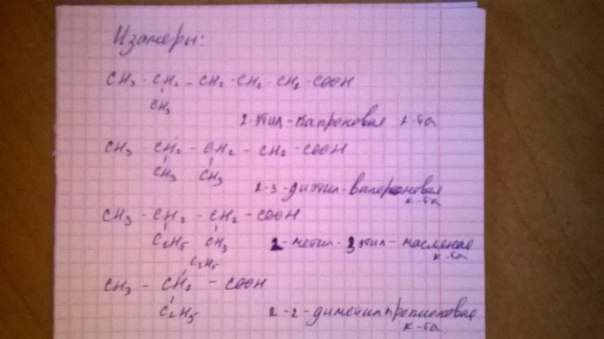 Изамеры:
CH₃ - CH₂ - CH₂ - CH₂ - CH₂ - COOH
CH₃
2-этил-капроновая к-та
CH₃ - CH₂ - CH₂ - CH₂ - COOH
CH₃ CH₃
2-3-диэтил-валерьоновая
к-та
CH₃ - CH₂ - CH₂ - COOH
C₂H₅ CH₃
2-метил-3этил-масленая
к-та
C₂H₅
CH₃ - CH₂ - COOH
C₂H₅
2-2-диметилпропионовая
к-та